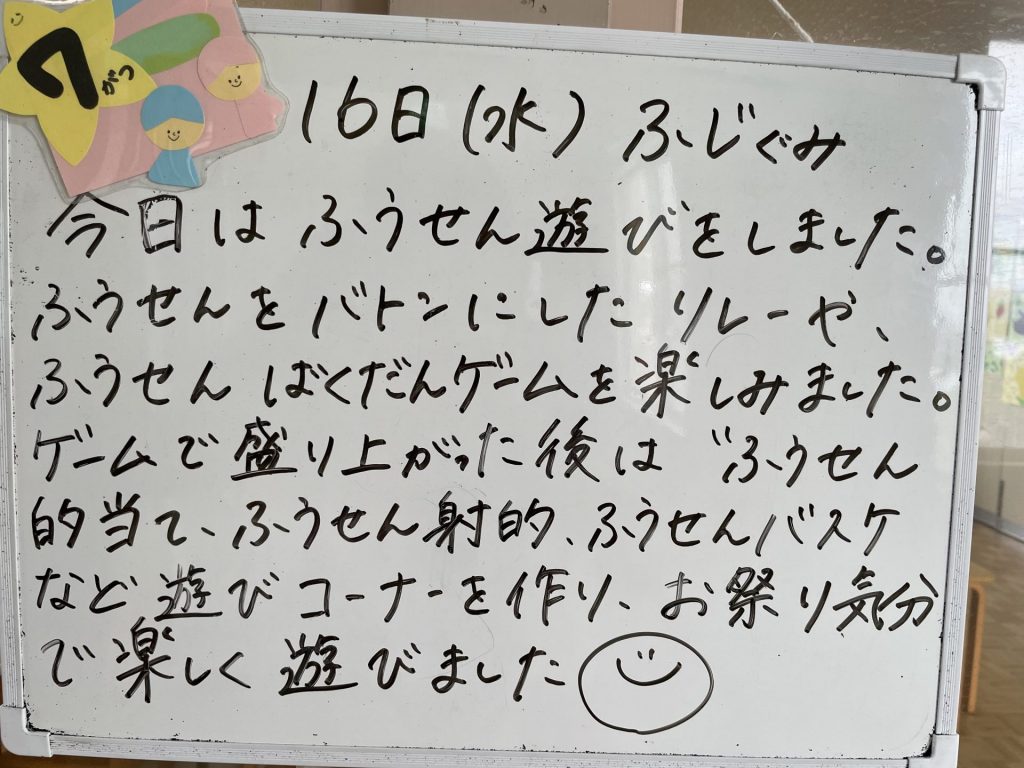 7がつ
16日(水) ふじぐみ
今日は ふうせん遊びをしました。
ふうせんをバトンにした リレーや、
ふうせん ばくだんゲームを楽しみました。
ゲームで盛り上がった後は〝ふうせん
的当て、ふうせん射的、ふうせんバスケ
など遊びコーナーを作り、お祭り気分
で楽しく遊びました